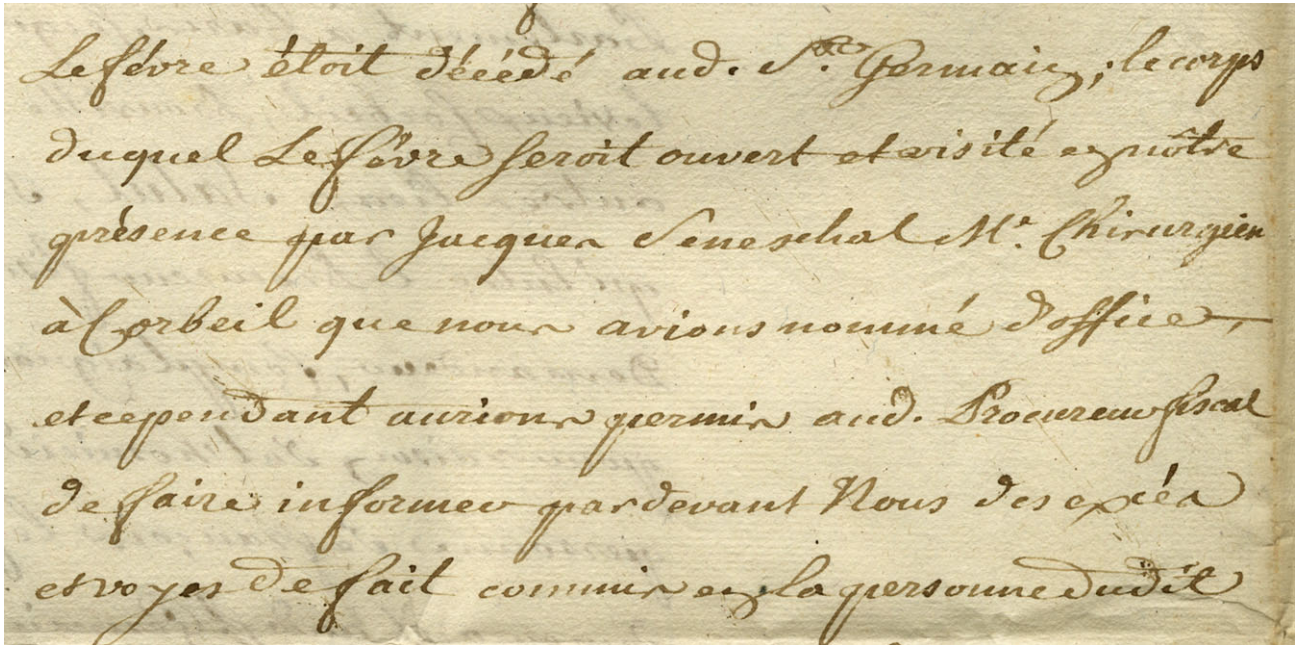 Lefévre étoit décédé aud. St. Germain ; le corps
duquel Lefévre seroit ouvert et visité en nôtre
présence par Jacques Seneschal Me. Chirurgien
à Corbeil que nous avions nommé d'office,
et cependant aurions permis aud. Procureur fiscal
de faire informer pardevant Nous des excés
et voyes de fait commis en la personne dudit